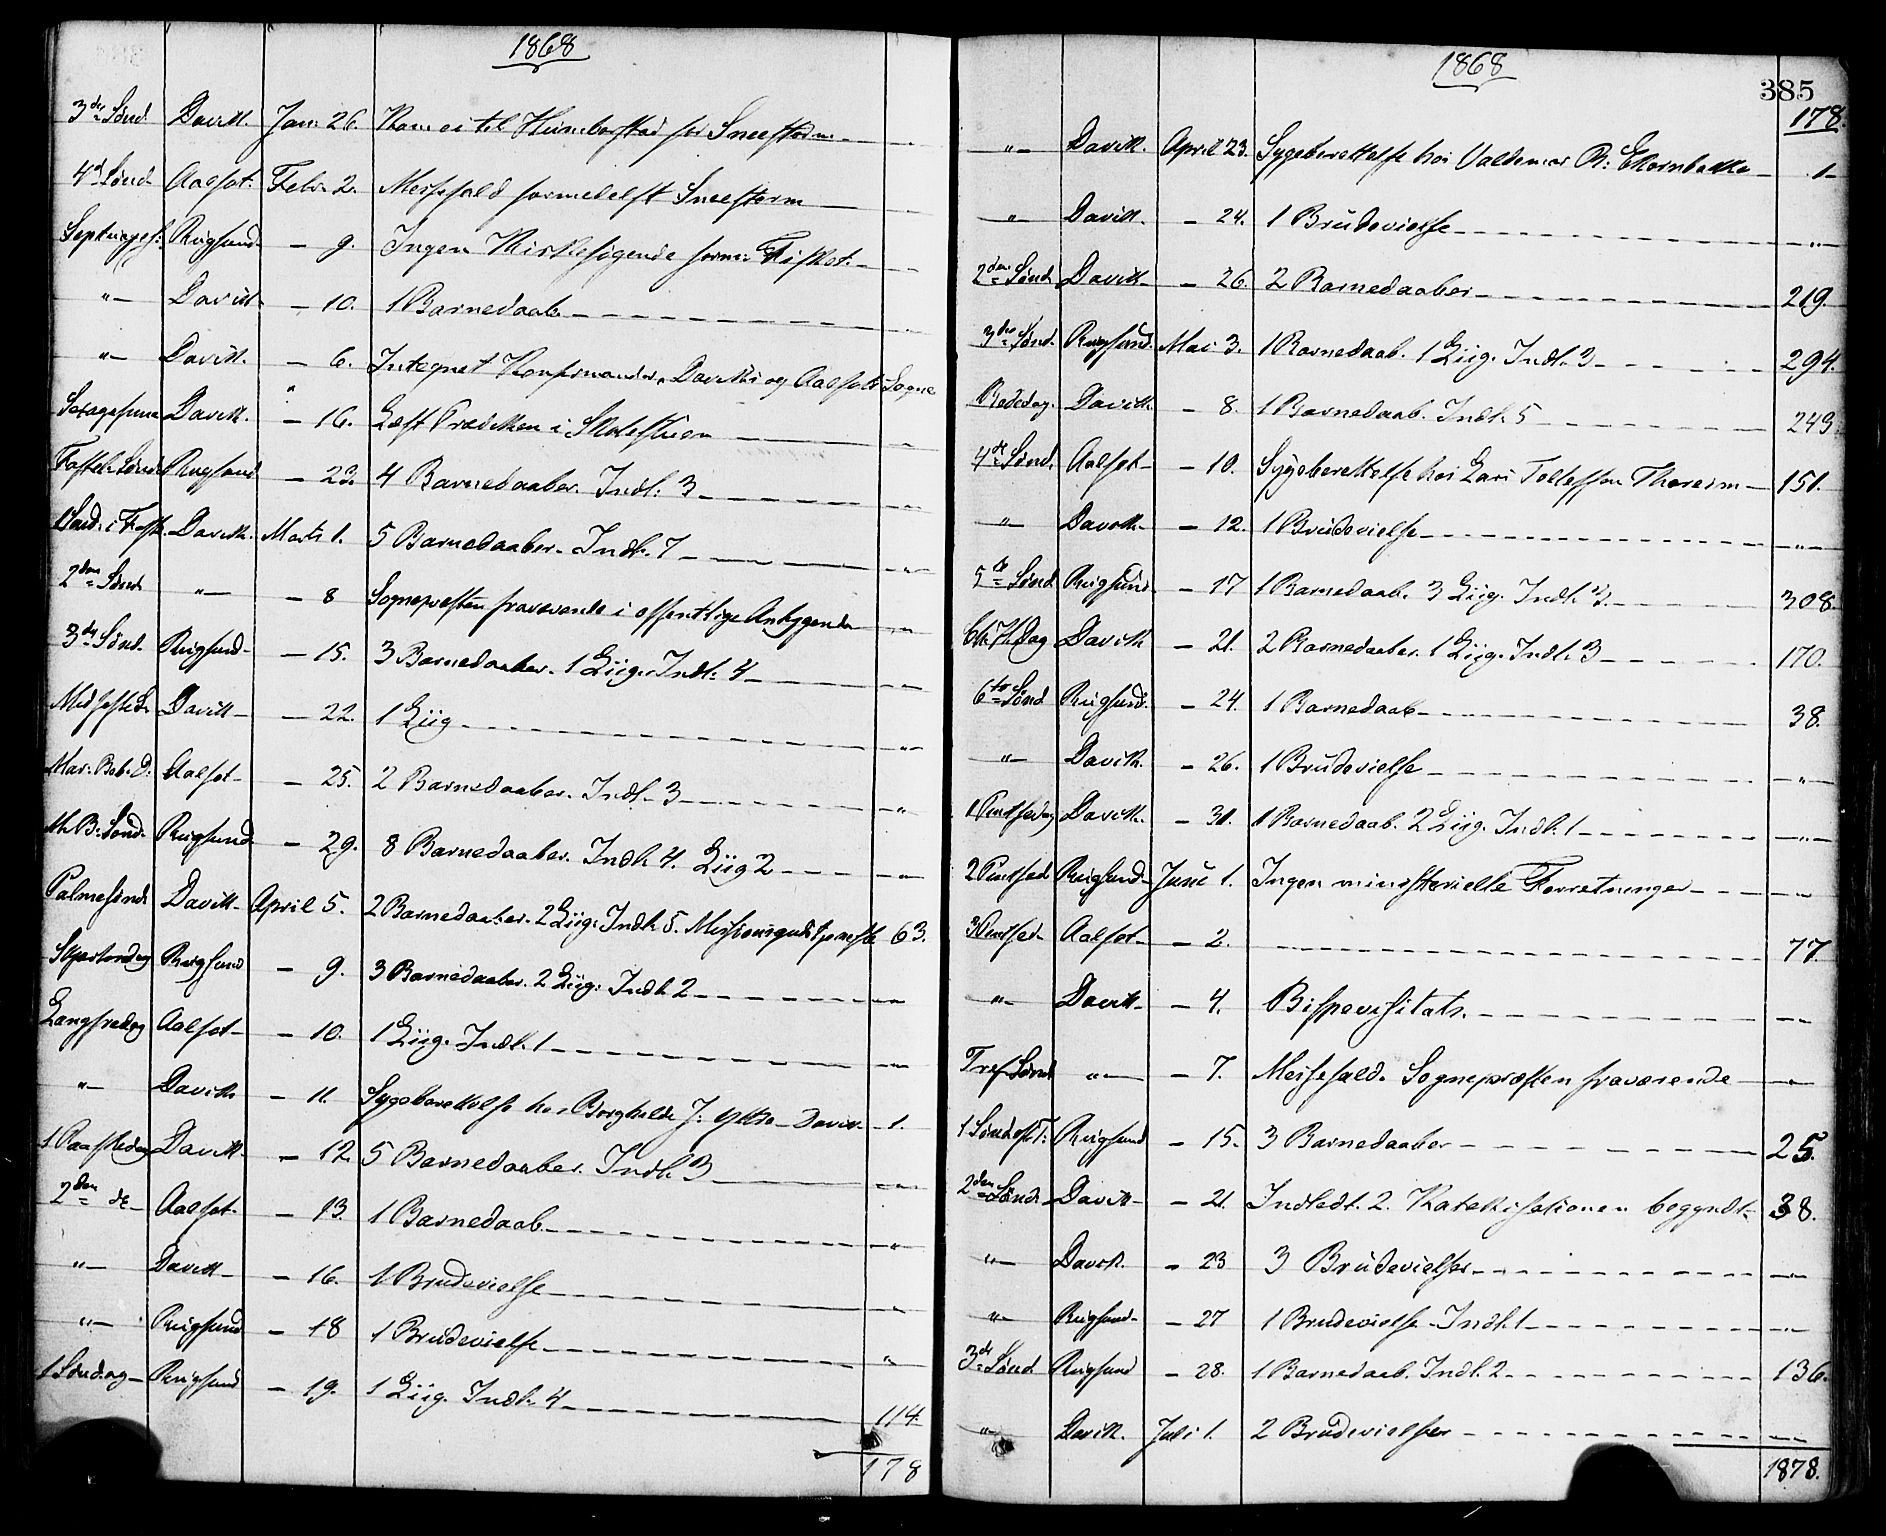 1868
3die Sønd. Davik. Jan. 26. Kom ei til Humborstad for Sneestorm
4d Sønd. Aalfot. Febr. 2. Messefald formedelst Sneestorm
Septuages. Rugsund. - 9. Ingen Kirkesøgende form. Fisket.
"- Davik - 10. 1 Barnedaab
"- Davik. - 6. Integnet Konfirmander, Daviks og Aalfots Sogne
Sexagesima Davik. " - 16. Læst Prædiken i Skolestuen
Fastel. Sønd. Rugsund - 23. 4 Barnedaaber. Indl: 3
1 Sønd. i Fast. Davik. Marts 1. 5 Barnedaaber. Indl. 7
2den Sønd "- - 8 Sognepresten fraværende i offentlige
3die Sønd. Rugsund - 15. 3 Barnedaaber. 1 Liig. Indl: 4
Midfaste S. Davik - 22. 1 Liig "
Mar. Beb. D. Aalfot - 25. 2 Barnedaaber. Indl. 3 "
M. B. Sønd. Rugsund - 29. 8 Barnedaaber. Indl. 4. Liig 2 "
Palmesønd. Davik April 5. 2 Barnedaaber. 2 Liig. Indl. 5. Missionsgudstjeneste 63.
Skjærtorsdag Rugsund - 9. 3 Barnedaaber. 2 Liig. Indl. 2
Langfredag Aalfot - 10. 1 Liig. Indl. 1
"- Davik - 11. Sygeberettelse hos Borghilde J. Ytre Davik. 1.
1 Paaskedag Davik - 12. 5 Barnedaaber. Indl. 3
2den do Aalfot - 13. 1 Barnedaab "
"- Davik - 16. 1 Brudevielse "
"- Rugsund - 18 1 Brudevielse "
1 Søndag Rugsund - 19. 1 Liig. Indl. 4 114.
178
1868
385
178.
"- Davik. April 23. Sygeberettelse hos Valdemar R: 1
"- Davik. - 24. 1 Brudevielse "
2den Sønd. Davik - 26. 2 Barnedaaber 219.
3die Sønd. Rugsund. Mai 3. 1 Barnedaab. 1 Liig. Indl. 3 294.
Bededag. Davik. - 8. 1 Barnedaab. Indl. 5 243.
4de Sønd. Aalfot - 10. Sygeberettelse hos Lars Tollefsen 151.
"- Davik - 12. 1 Brudevielse "
5te Sønd. Rugsund - 17 1 Barnedaab. 3 Liig. Indl. 3. 308.
Chr. H. Dag Davik - 21. 2 Barnedaaber. 1 Liig. Indl. 3 170.
6te Sønd Rugsund. - 24. 1 Barnedaab 38.
"- Davik. - 26. 1 Brudevielse "
1 Pintsedag Davik. - 31. 1 Barnedaab. 2 Liig. Indl. 1 "
2 Pintsed. Rugsund Juni 1. Ingen ministerielle Forretninger "
3 Pintsed. Aalfot - 2. 77.
"- Davik - 4. Bispevisitats.
Tref. Sønd "- - 7. Messefald. Sognepræsten fraværende
1 Sønd. eft. T: Rugsund - 15. 3 Barnedaaber 25.
2den Sønd. Davik - 21. Indledt. 2. Katekisationen begyndt 38.
"- Davik. - 23 3 Brudevielser
"- Rugsund - 27 1 Brudevielse. Indl. 1 "
3die Sønd Rugsund - 28. 1 Barnedaab. Indl. 2 136.
"- Davik. Juli 1. 2 Brudevielser
1878.